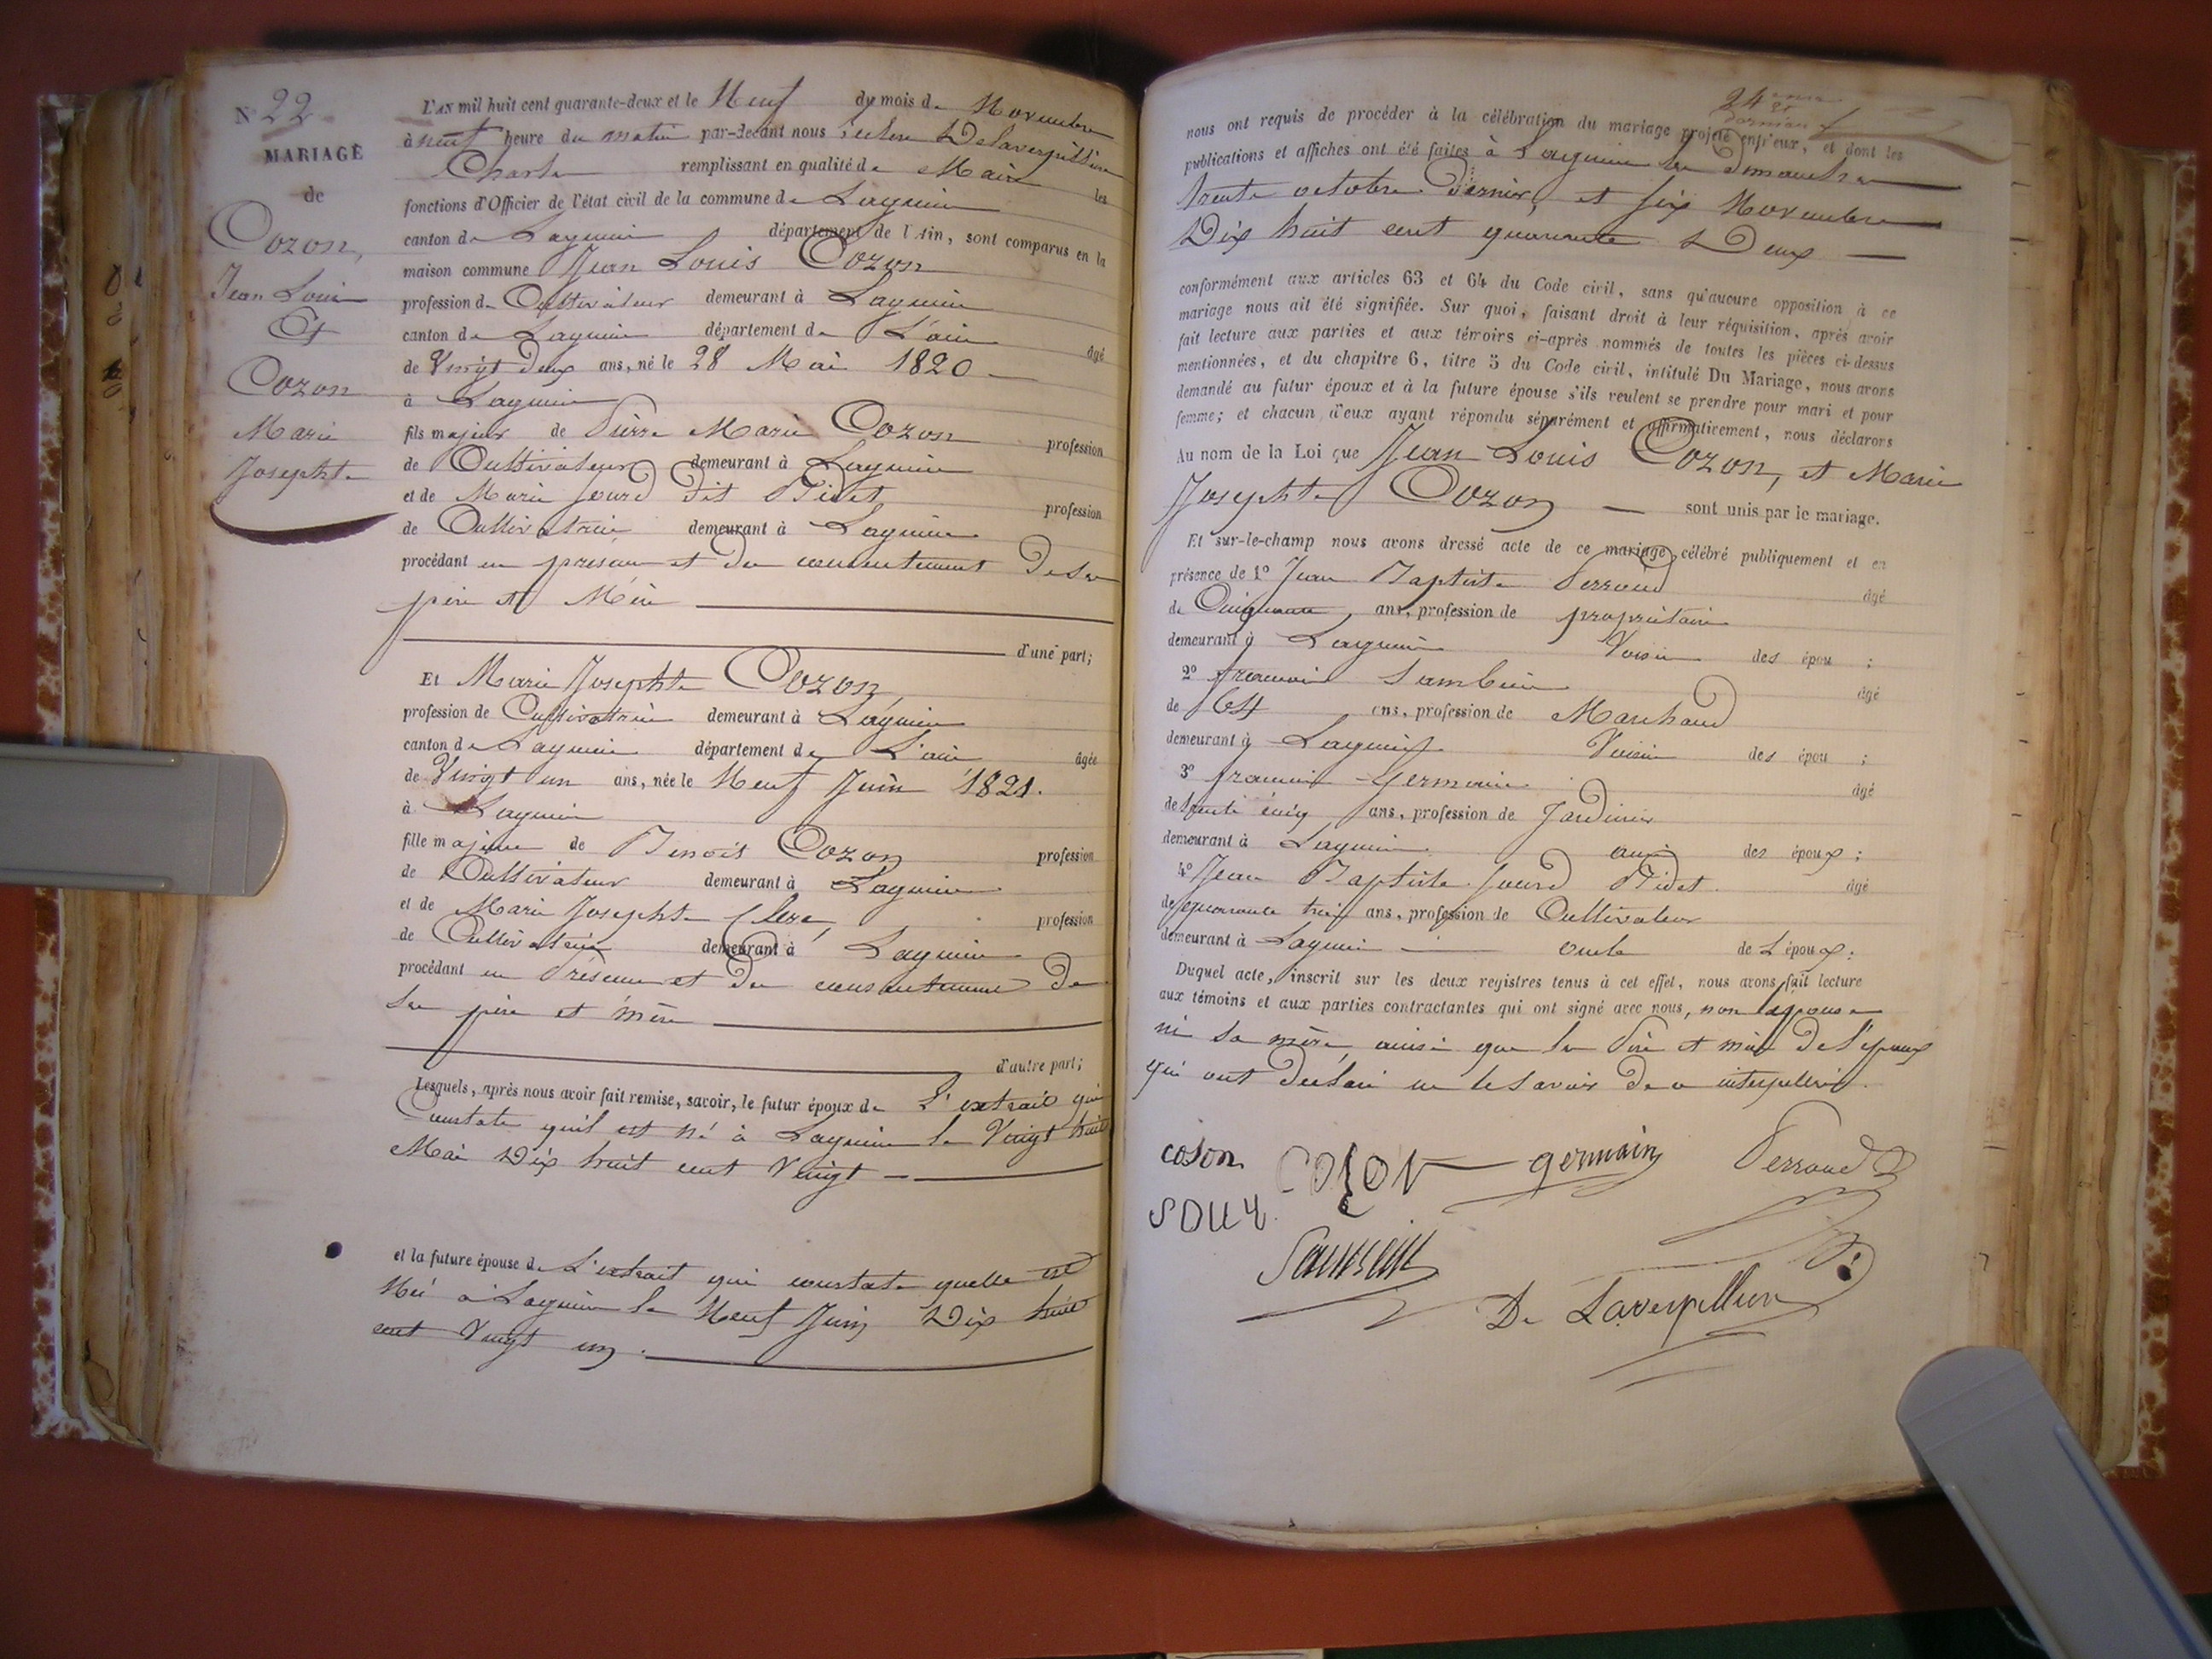 N° 22
MARIAGE
de
Cozon,
Jean Louis
Et
Cozon
Marie
Josephte
L'AN mil huit cent quarante-deux et le Neuf du mois de Novembre
à neuf heure du matin par-devant nous Delaverpillière
Charles remplissant en qualité de Maire les
fonctions d'Officier de l'état civil de la commune de Lagnieu
canton de Lagnieu département de l'Ain, sont comparus en la
maison commune Jean Louis Cozon
profession de Cultivateur demeurant à Lagnieu
canton de Lagnieu département de L'ain âgé
de Vingt deux ans, né le 28 Mai 1820
à Lagnieu
fils majeur de Pierre Marie Cozon profession
de Cultivateur demeurant à Lagnieu
et de Marie Jourd dit Bidet profession
de Cultivatrice demeurant à Lagnieu
procédant en présence et du consentement de ses
père et Mère
d'une part;
Et Marie Josephte Cozon
profession de Cultivatrice demeurant à Lagnieu
canton de Lagnieu département de L'ain âgée
de Vingt un ans, née le Neuf Juin 1821.
à Lagnieu
fille majeure de Benoit Cozon profession
de Cultivateur demeurant à Lagnieu
et de Marie Josephte profession
de Cultivatrice demeurant à Lagnieu
procédant en Présence et du consentement de
ses père et mère
d'autre part;
Lesquels, après nous avoir fait remise, savoir, le futur époux de L'extrait qui
Constate qu'il est né à Lagnieu le Vingt huit
Mai Dix huit cent Vingt
et la future épouse de L'extrait qui constate quelle est
Née à Lagnieu le Neuf Juin Dix huit
cent Vingt un.
24
dernier
nous ont requis de procéder à la célébration du mariage projeté entr'eux, et dont les
publications et affiches ont été faites à Lagnieu les Dimanches
trente octobre dernier, et six Novembre
Dix huit cent quarante Deux
conformément aux articles 63 et 64 du Code civil, sans qu'aucune opposition à ce
mariage nous ait été signifiée. Sur quoi, faisant droit à leur réquisition, après avoir
fait lecture aux parties et aux témoins ci-après nommés de toutes les pièces ci-dessus
mentionnées, et du chapitre 6, titre 5 du Code civil, intitulé Du Mariage, nous avons
demandé au futur époux et à la future épouse s'ils veulent se prendre pour mari et pour
femme; et chacun d'eux ayant répondu séparément et affirmativement, nous déclarons
Au nom de la Loi que Jean Louis Cozon, et Marie
Josephte Cozon sont unis par le mariage.
Et sur-le-champ nous avons dressé acte de ce mariage célébré publiquement et en
présence de 1° Jean Baptiste Perroud âgé
de Cinquante ans, profession de propriétaire
demeurant à Lagnieu Voisin des épou ;
2° françois âgé
de 64 ans, profession de Marchand
demeurant à Lagnieu Voisin des épou ;
3° françois Germain âgé
de trente cinq ans, profession de Jardinier
demeurant à Lagnieu ami des époux ;
4° Jean Baptiste Jourd Bidet âgé
de quarante trois ans, profession de Cultivateur
demeurant à Lagnieu oncle de L'époux:
Duquel acte, inscrit sur les deux registres tenus à cet effet, nous avons fait lecture
aux témoins et aux parties contractantes qui ont signé avec nous, non l'épouse
ni sa mère, ainsi que les Père et mère de l'époux
qui ont déclaré ne le savoir de ce interpellés.
coson COZON germain Perroud
De Laverpillière